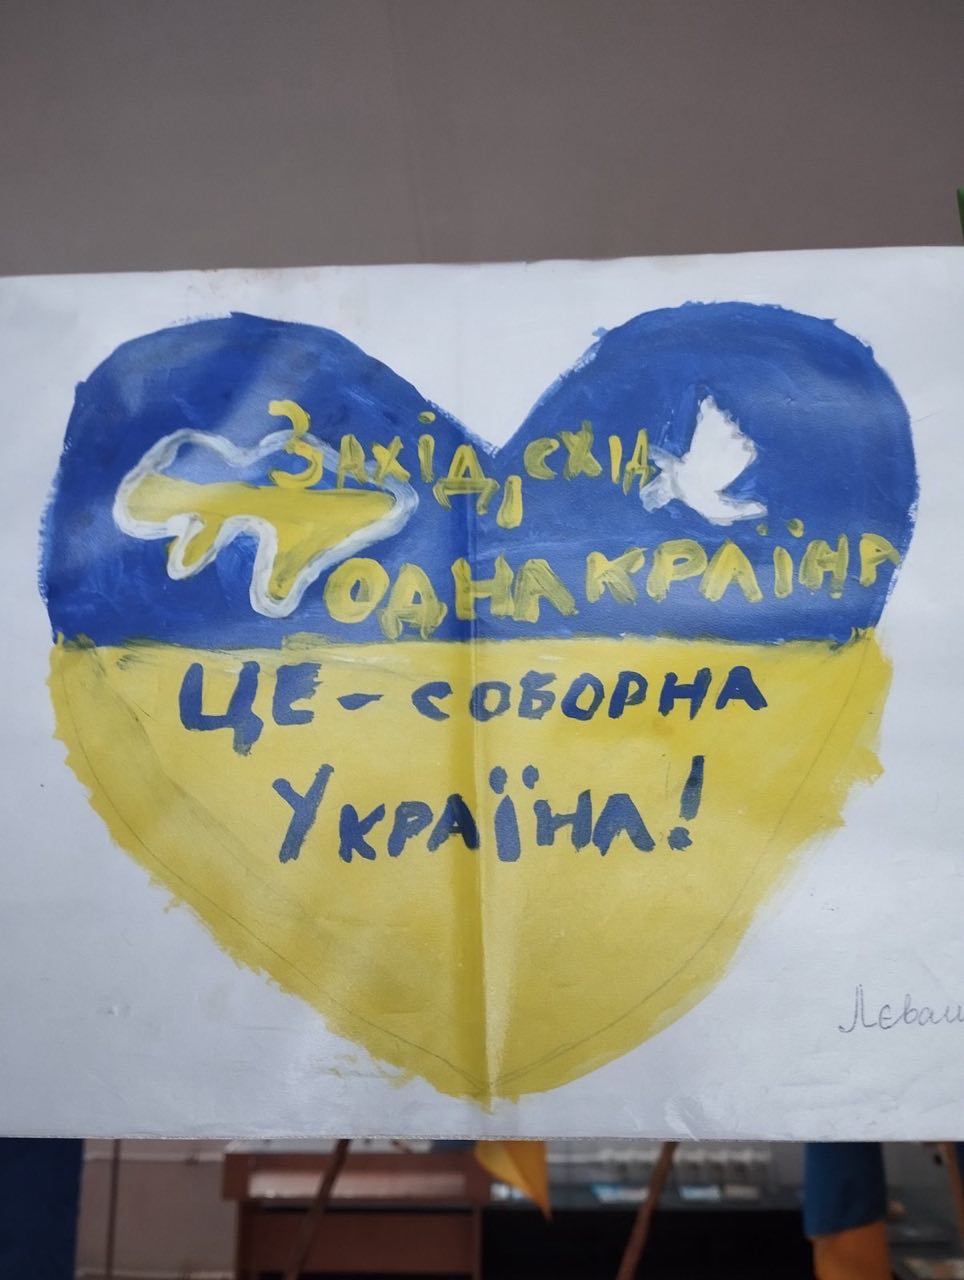 Захід, схід
одна країна
Це - соборна
Україна!